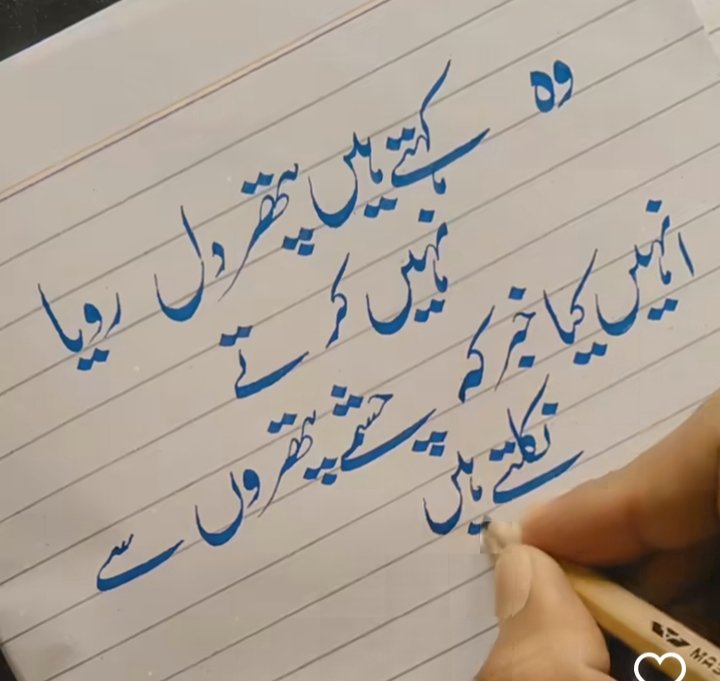 وہ کہتے ہیں پتھر دل رویا
نہیں کرتے
انہیں کیا خبر کہ چشمے پتھروں سے
نکلتے ہیں